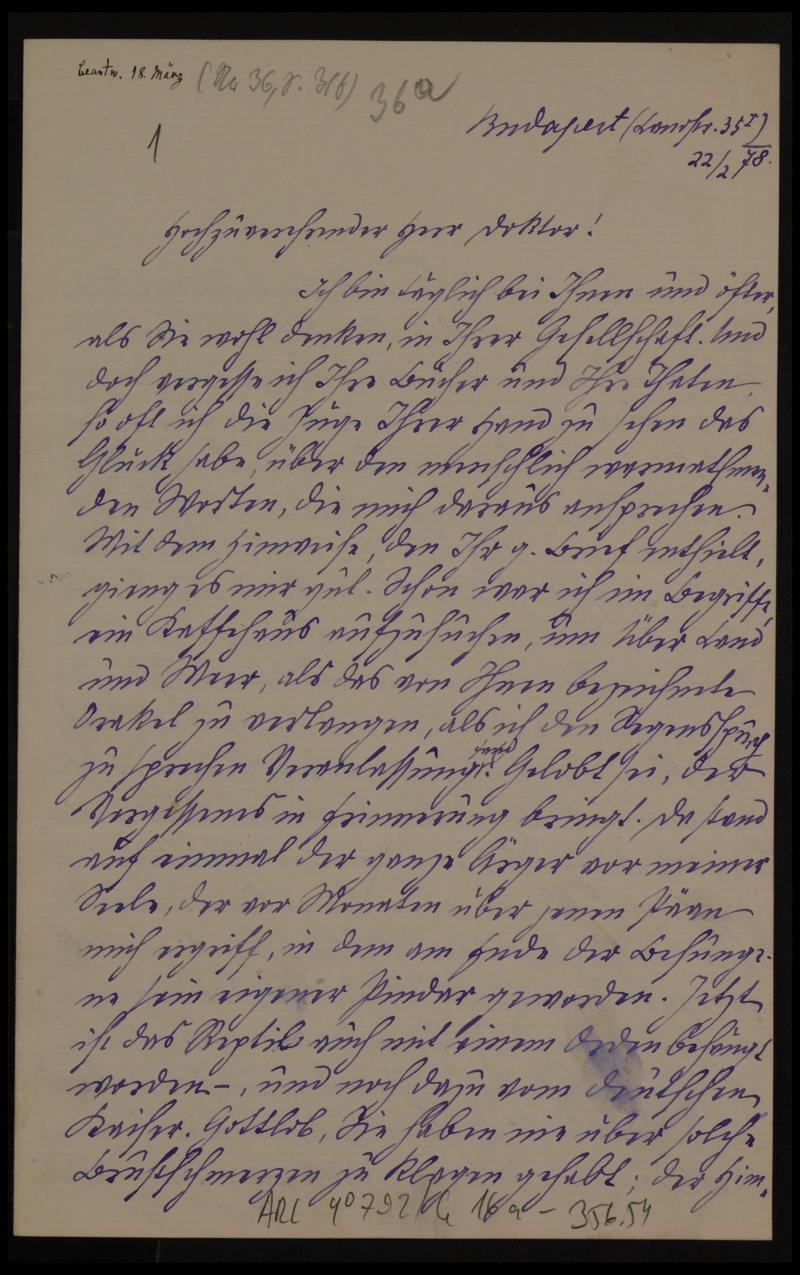 beantw. 18. März (Nr 36, S. 316) 36a
1
Budapest (Landstr. 35 I)
22/2 78.
Hochzuverehrender Herr Doktor!
Ich bin täglich bei Ihnen und öfter,
als Sie wohl denken, in Ihrer Gesellschaft. Und
doch vergesse ich Ihre Bücher und Ihre Thaten,
so oft ich die Züge Ihrer Hand zu sehen das
Glück habe, über den menschlich warmathmen-
den Worten, die mich daraus ansprechen.
Mit dem Hinweise, den Ihr g. Brief enthielt,
gieng es mir gut. Schon war ich im Begriffe,
ein Kaffehaus aufzusuchen, um Über Land
und Meer, als das von Ihnen bezeichnete
Orakel zu verlangen, als ich den Segensspruch
zu sprechen Veranlassung fand: Gelobt sei, der
Vergessenes in Erinnerung bringt. Da stand
auf einmal der ganze Ärger vor meiner
Seele, der vor Monaten über jenen Päan
mich ergriff, in dem am Ende der Besunge-
ne sein eigener Pindar geworden. Jetzt
ist das Reptil auch mit einem Orden behängt
worden –, und noch dazu vom deutschen
Kaiser. Gottlob, Sie haben nie über solche
Brustschmerzen zu klagen gehabt; der Him-
ARC 4° 792/G 16a - 356.54